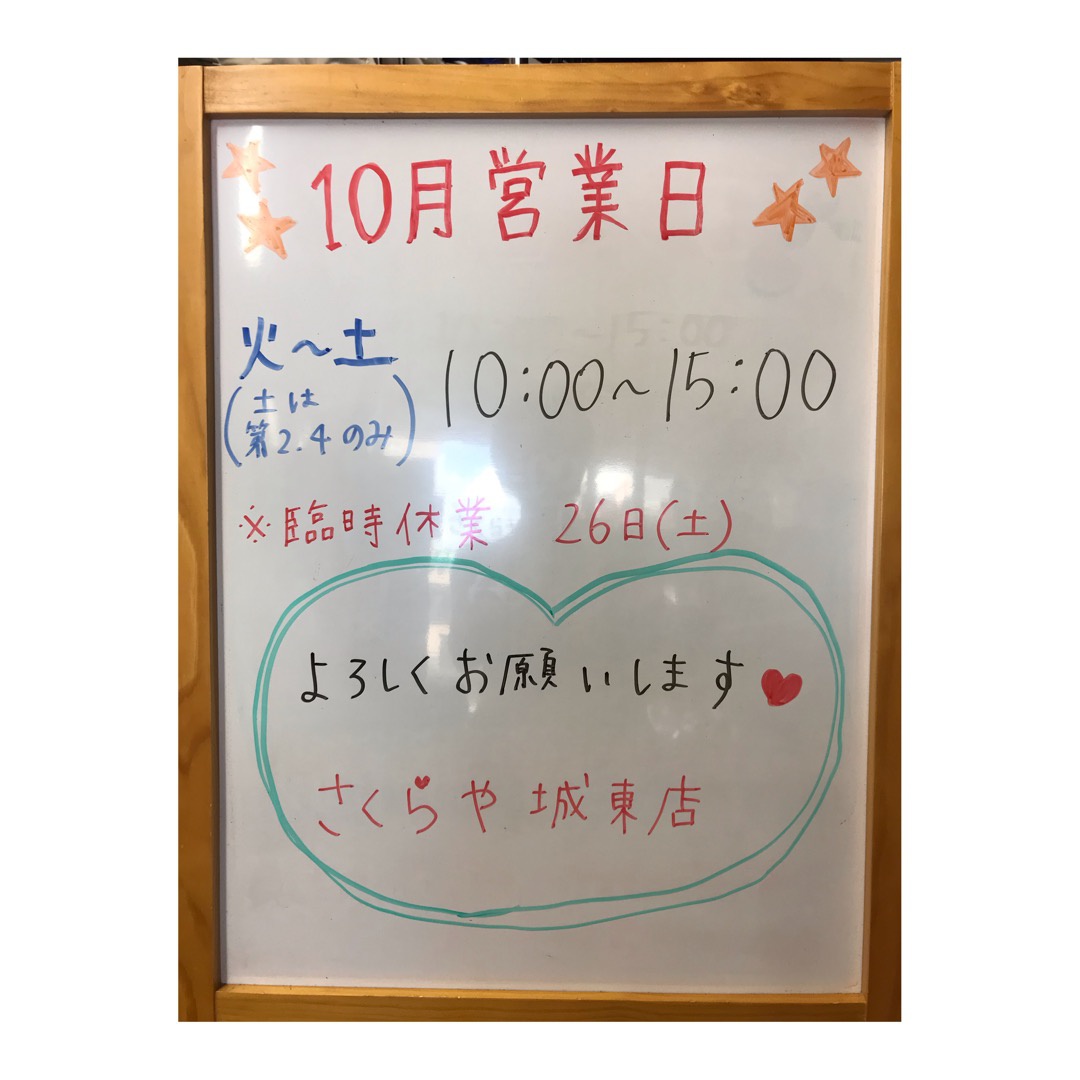 10月営業日
火～土
(土は
第2.4のみ)
10:00～15:00
※臨時休業 26日(土)
よろしくお願いします
さくらや城東店